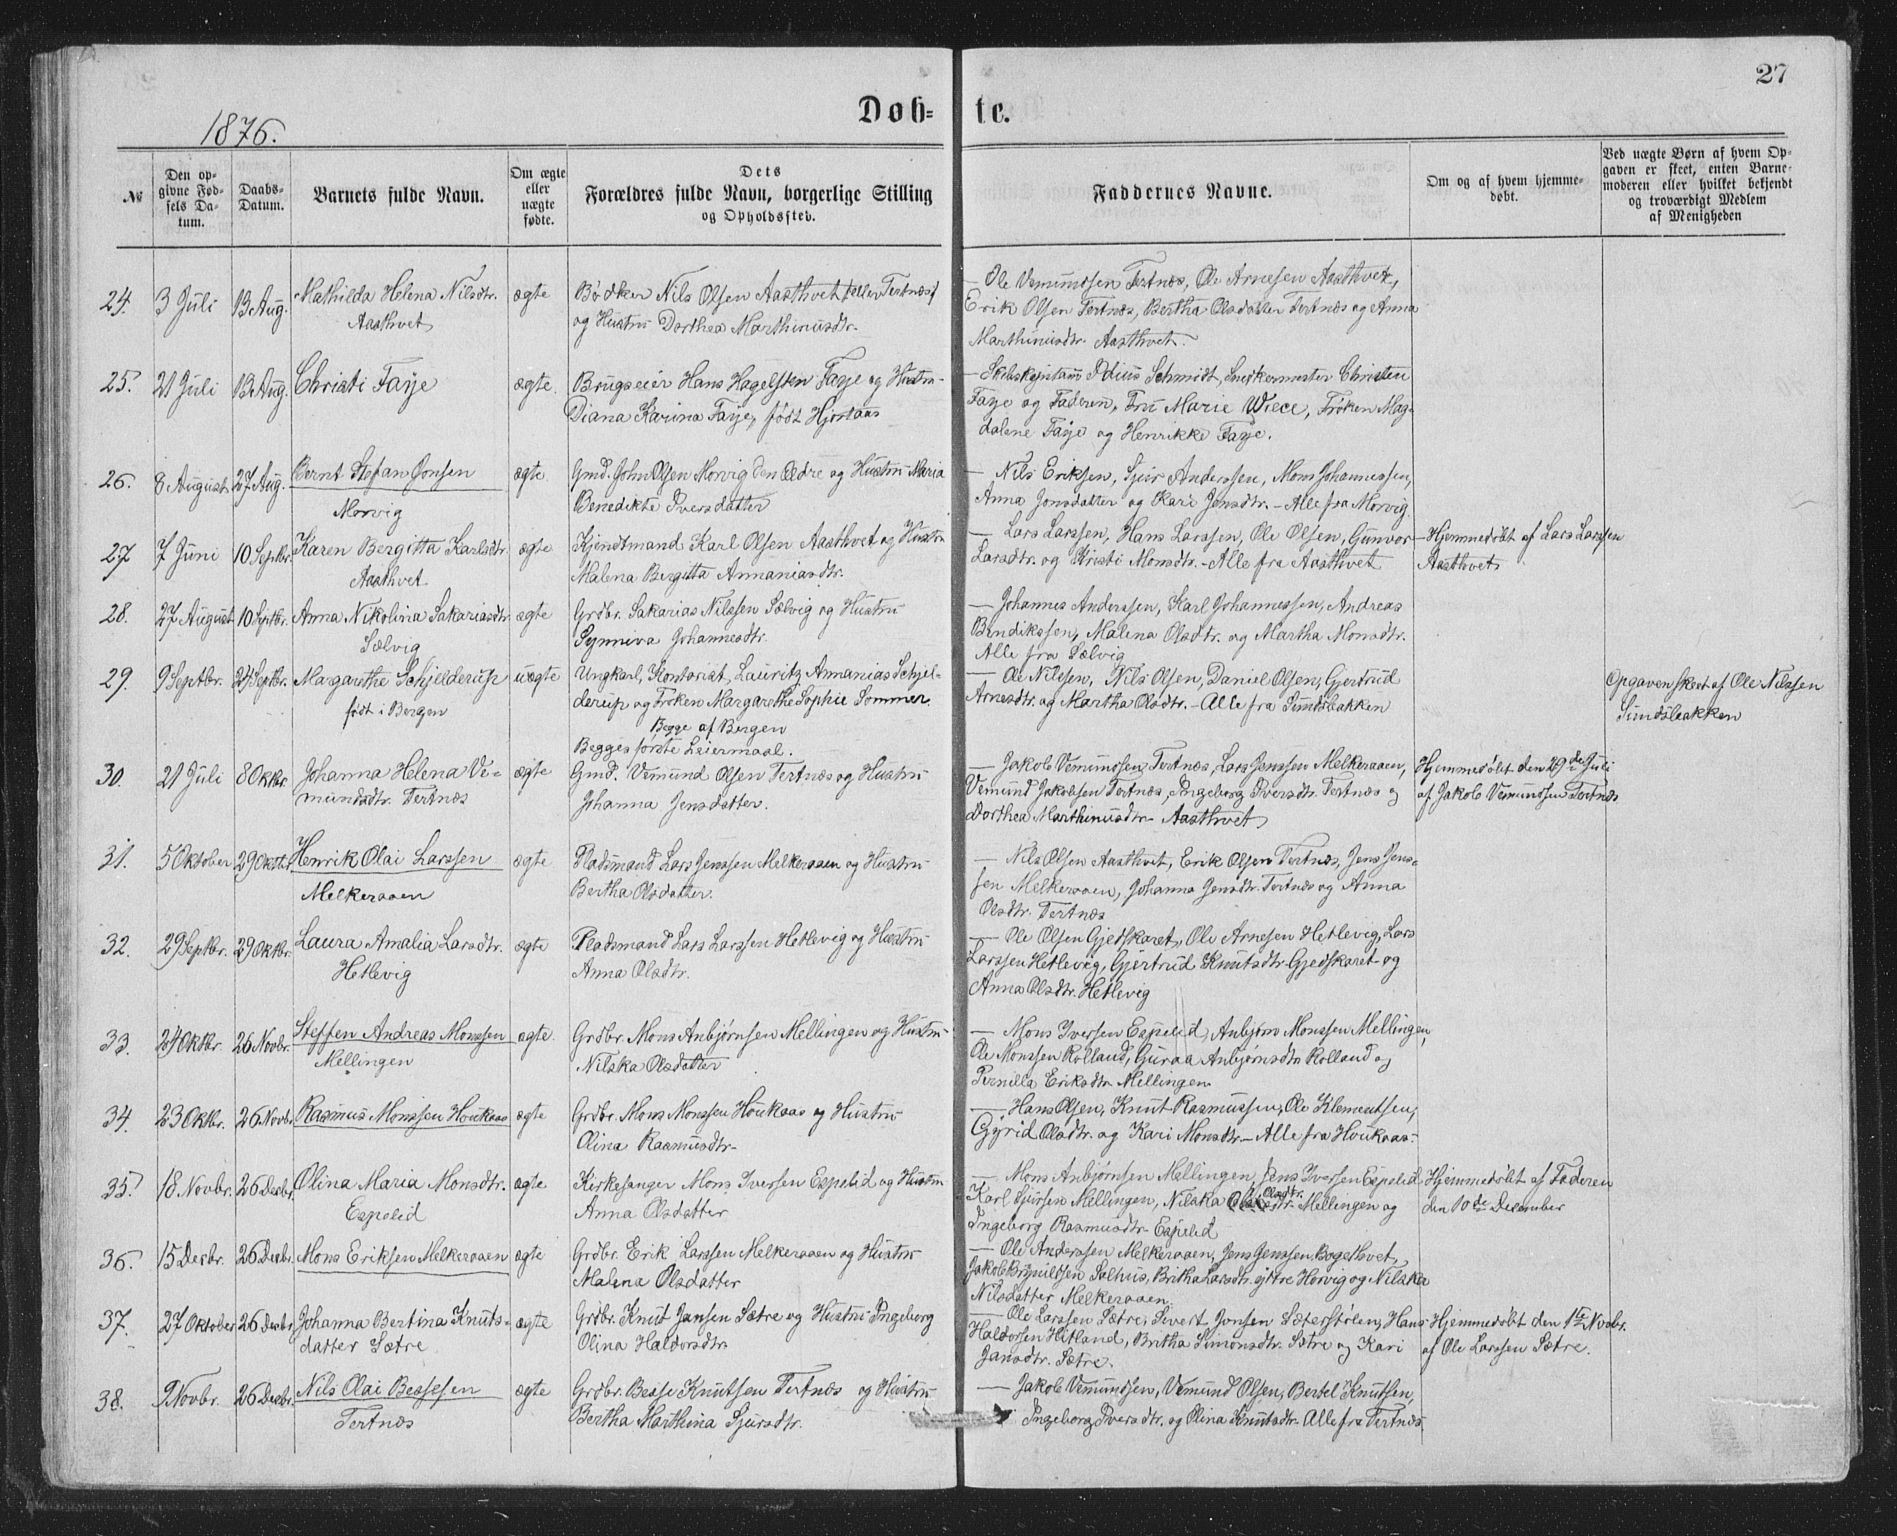 27
Döb-te.
1876.
№
Den op-
givne Fød-
sels Da-
tum.
Daabs-
Datum.
Barnets fulde Navn.
Om ægte
eller
uægte
fødte.
Dets
Forældres fulde Navn, borgerlige Stilling
og Opholdssted.
Faddernes Navne.
Om og af hvem hjemme-
døbt.
Ved uægte Børn af hvem Op-
gaven er skeet, enten Barne-
moderen eller hvilket bekjendt
og troværdigt Medlem
af Menigheden
24. 3 Juli 13 Aug. Mathilda Helena Nilsdtr. ægte
Aasthvet
Bødker Nils Olsen Aasthvet (eller Tertnæs)
og Hustru Dorthea Marthinusdtr.
— Ole Vemundsen Tertnæs, Ole Arnesen Aasthvet,
Erik Olsen Tertnæs, Bertha Olsdatter Tertnæs og Anna
Marthinusdtr. Aasthvet.
25. 21 Juli 13 Aug. Christi Faye ægte.
Brugseier Hans Hagelsten Faye og Hustru
Diana Karina Faye, født Hjortaas
— Skibskaptain Schmidt, Snedkermester Christen
Faye og Faderen, Fru Marie Wiece, Frøken Mag-
dalene Faye og Henrikke Faye.
26. 8 August 27 Aug. Bernt Stefan Jonsen ægte
Morvig
Gmd. John Olsen Morvig den Ældre og Hustru Maria
Benedikte Iversdatter
— Nils Eriksen, Sjur Anderssen, Mons Johannessen,
Anna Jonsdatter og Kari Jensdtr. — Alle fra Morvig.
27 7 Juni 10 Septbr. Karen Bergitta Karlsdtr. ægte
Aasthvet.
Kjendtmand Karl Olsen Aasthvet og Hustru
Malena Bergitta Annaniasdtr.
— Lars Larssen, Hans Larssen, Ole Olsen, Gunvor
Larsdtr. og Kristi Monsdtr. — Alle fra Aasthvet
Hjemmedøbt af Lars Larssen
Aasthvet
28. 27 August 10 Septbr. Anna Nikolina Sakariasdtr. ægte
Sælvig
Grdbr. Sakarias Nilssen Sælvig og Hustru
Synneva Johannesdtr.
— Johannes Anderssen, Karl Johannessen, Andreas
Bendikssen, Malena Olsdtr. og Martha Monsdtr.
Alle fra Sælvig
29. 9 Septbr. 24 Septbr. Margarethe Schjelderup uægte
født i Bergen
Ungkarl, Kontorist, Lauritz Annanias Schjel-
derup og Frøken Margarethe Sophie Sommer
Begge af Bergen
Begges første Leiermaal.
— Ole Nilssen, Nils Olsen, Daniel Olsen, Gjertrud
Arnesdtr. og Martha Olsdtr. — Alle fra Sundsbakken
Opgaven skeet af Ole Nilssen
Sundsbakken
30. 21 Juli 8 Oktbr. Johanna Helena Ve- ægte
mundsdtr. Tertnæs
Gmd. Vemund Olsen Tertnæs og Hustru
Johanna Jensdatter.
— Jakob Vemundsen Tertnæs, Lars Jenssen Melkeraaen,
Vemund Jakobsen Tertnæs, Ingeborg Iversdtr. Tertnæs og
Dorthea Marthinusdtr. Aasthvet
Hjemmedøbt den 29de Juli
af Jakob Vemundsen Tertnæs
31. 5 Oktober 29 Oktbr. Henrik Olai Larssen ægte
Melkeraaen
Pladsmand Lars Jenssen Melkeraaen og Hustru
Bertha Olsdatter.
— Nils Olsen Aasthvet, Erik Olsen Tertnæs, Jens Jens-
sen Melkeraaen, Johanna Jensdtr. Tertnæs og Anna
Olsdtr. Tertnæs
32. 29 Septbr. 29 Oktbr. Laura Amalia Larsdtr. ægte
Hetlevig
Pladsmand Lars Larssen Hetlevig og Hustru
Anna Olsdtr.
— Ole Olsen Gjedskaret, Ole Arnesen Hetlevig, Lars
Larssen Hetlevig, Gjertrud Knutsdtr. Gjedskaret og
Anna Olsdtr. Hetlevig
33. 24 Oktbr. 26 Novbr. Steffen Andreas Monssen ægte.
Mellingen
Grdbr. Mons Anbjørnsen Mellingen og Hustru
Nilska Olsdatter
— Mons Iversen Espelid, Anbjørn Monssen Mellingen,
Ole Monssen Rolland, Guraa Anbjørnsdtr. Rolland og
Pernilla Eriksdtr. Mellingen
34. 23 Oktbr. 26 Novbr. Rasmus Monssen Houkaas ægte
Grdbr. Mons Monssen Houkaas og Hustru
Olina Rasmusdtr.
— Hans Olsen, Knut Rasmussen, Ole Klementsen,
Gyrid Olsdtr. og Kari Monsdtr. — Alle fra Houkaas.
35. 18 Novbr. 26 Decbr. Olina Maria Monsdtr. ægte
Espelid
Kirkesanger Mons Iversen Espelid og Hustru
Anna Olsdatter
— Mons Anbjørnsen Mellingen, Jens Iversen Espelid,
Karl Sjursen Mellingen, Nilska Olsdtr. Mellingen og
Ingeborg Rasmusdtr. Espelid
Hjemmedøbt af Faderen
den 10de December
36. 15 Decbr. 26 Decbr. Mons Eriksen Melkeraaen ægte
Grdbr. Erik Larssen Melkeraaen og Hustru
Malena Olsdatter
— Ole Anderssen Melkeraaen, Jens Jenssen Bogethvet,
Jakob Brynildsen Salhus, Britha Larsdtr. yttre Horvig og Nilska
Nilsdatter Melkeraaen.
37. 27 Oktober 26 Decbr. Johanna Bertina Knuts- ægte
datter Sætre
Grdbr. Knut Jansen Sætre og Hustru Ingeborg
Olina Haldorsdtr.
— Ole Larssen Sætre, Sivert Jonsen Sæterstølen, Hans
Haldorsen Hitland, Britha Simonsdtr. Sætre og Kari
Jansdtr. Sætre.
Hjemmedøbt den 1ste Novbr.
af Ole Larssen Sætre.
38. 9 Novbr. 26 Decbr. Nils Olai Bessesen ægte
Tertnæs
Grdbr. Besse Knutsen Tertnæs og Hustru
Bertha Marthina Sjursdtr.
— Jakob Vemundsen, Vemund Olsen, Bertel Knutsen,
Ingeborg Iversdtr. og Olina Knutsdtr. Alle fra Tertnæs